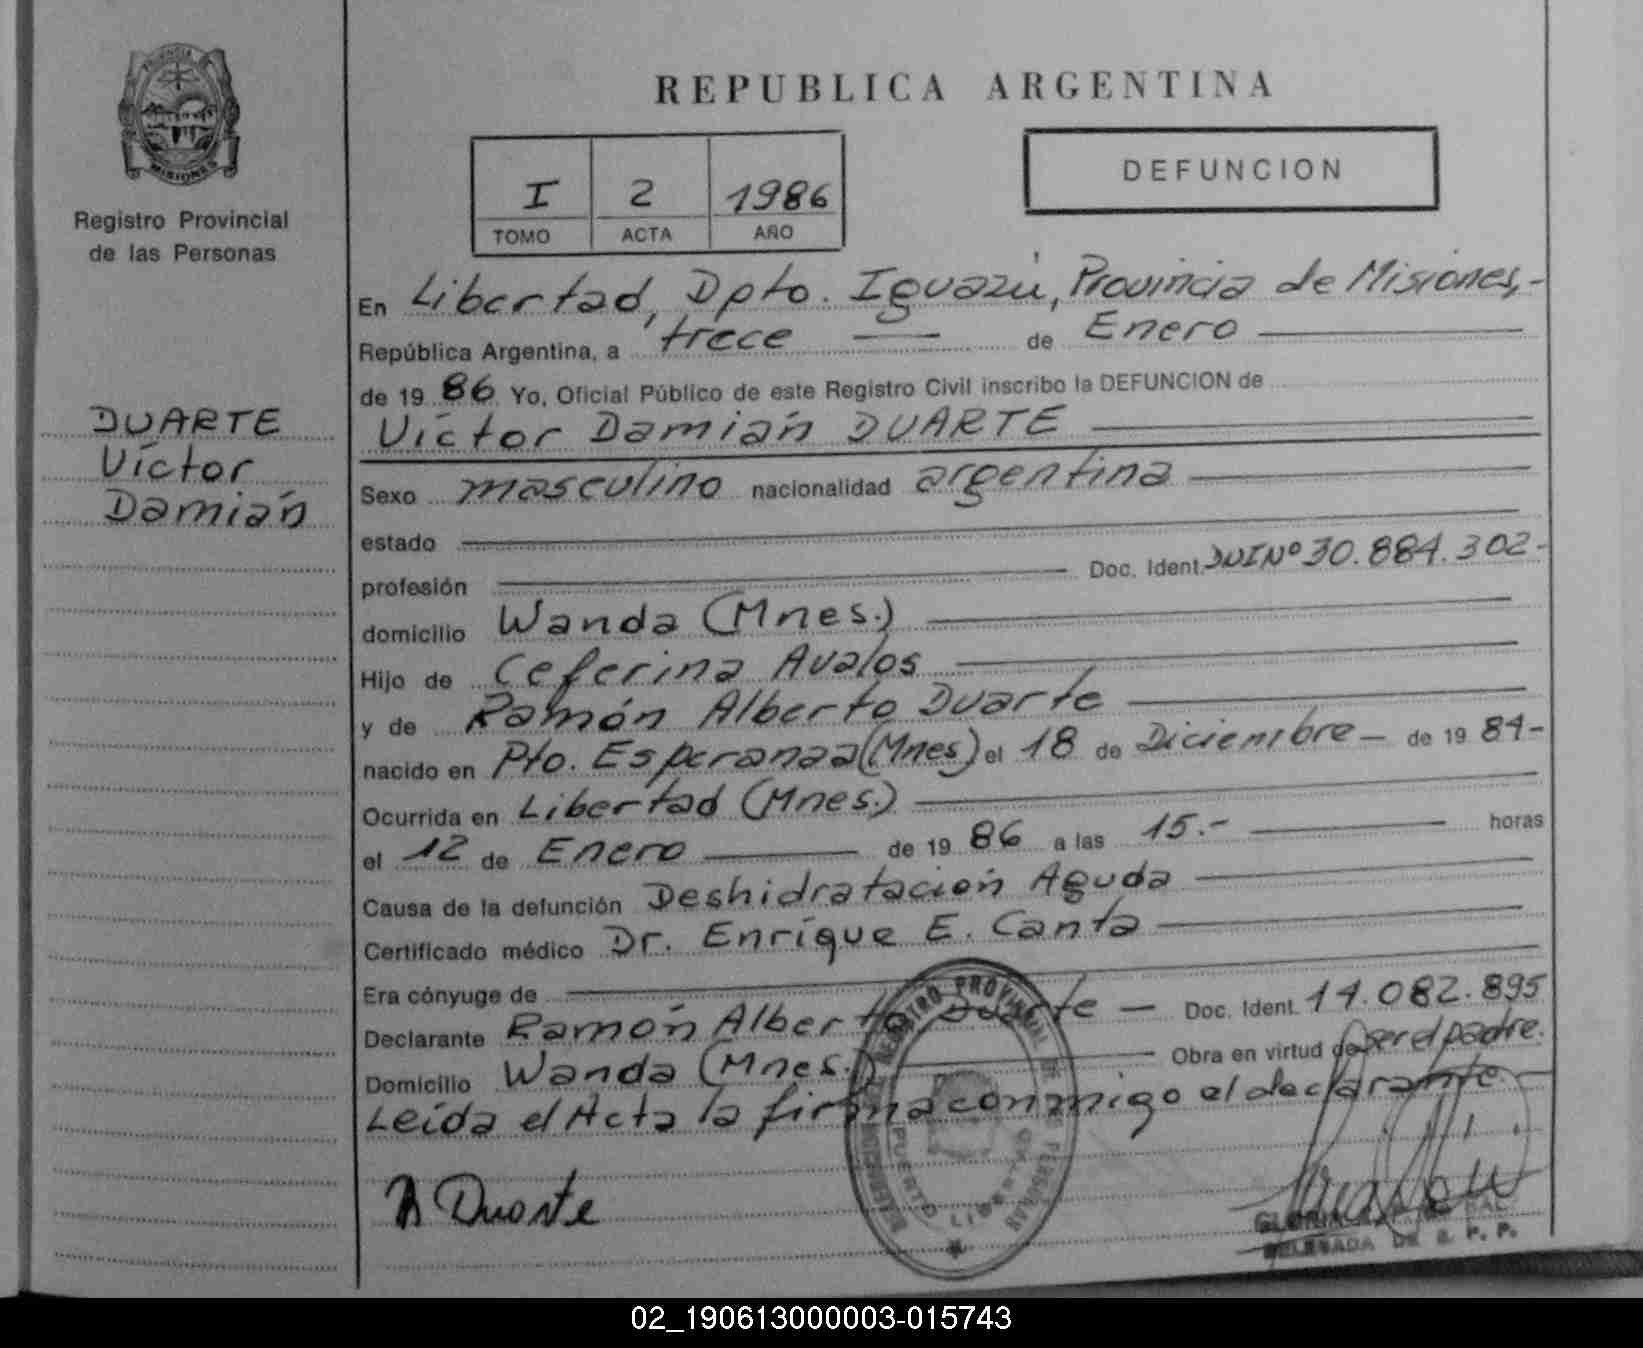 PROVINCIA
MISIONES
Registro Provincial
de las Personas
DUARTE
Víctor
Damián
REPUBLICA ARGENTINA
I 2 1986
TOMO ACTA AÑO
DEFUNCION
En Libertad, Dpto. Iguazú, Provincia de Misiones,-
República Argentina, a trece de Enero
de 19 86 Yo, Oficial Público de este Registro Civil inscribo la DEFUNCION de
Víctor Damián DUARTE
Sexo masculino nacionalidad argentina
estado
profesión Doc. Ident. DNI Nº 30.884.302-
domicilio Wanda (Mnes.)
Hijo de Ceferina Avalos
y de Ramón Alberto Duarte
nacido en Pto. Esperanza (Mnes) el 18 de Diciembre - de 19 84-
Ocurrida en Libertad (Mnes.)
el 12 de Enero de 19 86 a las 15.- horas
Causa de la defunción Deshidratación Aguda
Certificado médico Dr. Enríque E. Canta
Era cónyuge de
Declarante Ramón Alberto Duarte - Doc. Ident. 14.082.895
Domicilio Wanda (Mnes.) Obra en virtud de ser el padre.
Leída el Acta la firma conmigo el declarante
REGISTRO PROVINCIAL DE LAS PERSONAS
PUERTO LIBERTAD
R Duarte
GLORIA
DELEGADA DE R. P. P.
02_190613000003-015743